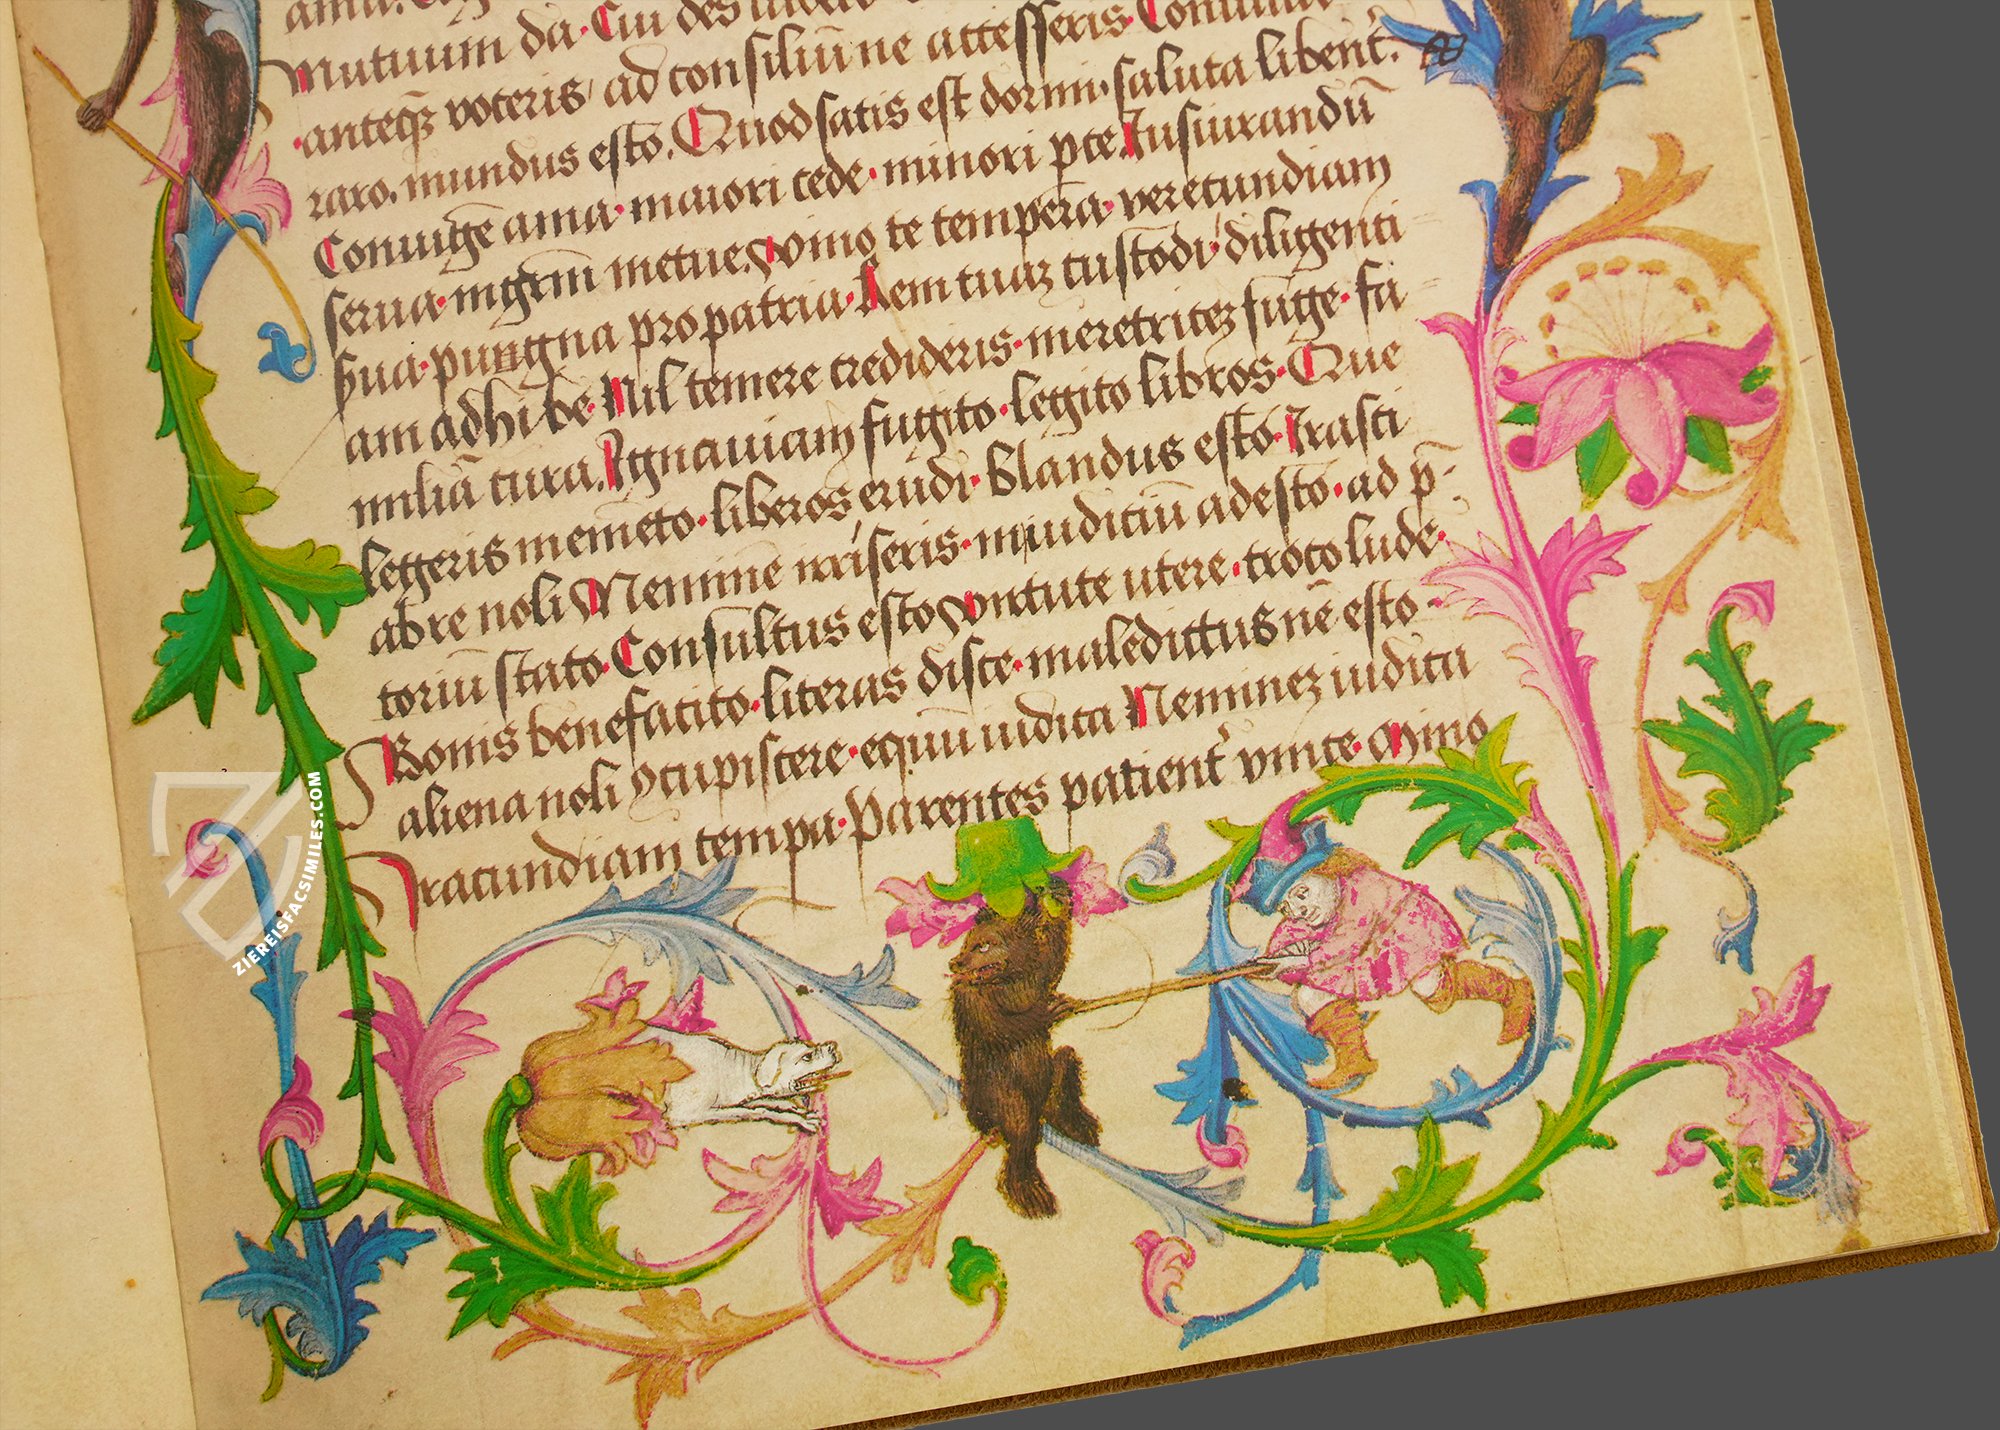 Mutuum da · Cui des
anteq̃ voceris ad consiliũ ne accesseris
raro. mundus esto. Quod satis est dormi · saluta libent̃.
Coniugẽ ama · maiori cede · minori pce. Iusiurandũ
serua · mgrm̃ metue. vino te tempera · verecundiam
hua · pungna pro patria · Rem tuaz custodi · diligenti
am adhibe · Nil temere credideris · meretricez fuge · fa
miliã cura. Ignauiam fugito · legito libros · Que
legeris memẽto · liberos erudi · blandus esto · Irasci
ab re noli Neminẽ irriseris · in iudiciũ adesto · ad p̃
toriũ stato · Consultus esto virtute utere · troco lude
Bonis benefacito · literas disce · maledictus nẽ esto
aliena noli ꝯcupiscere · equũ iudica Neminez iudica
Iracundiam tempa · Parentes patient̃ vince · Mino
ZIEREISFACSIMILES.COM